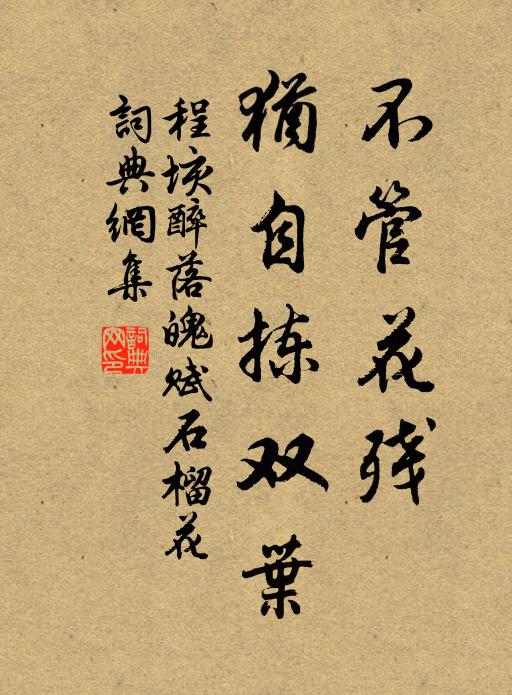 不管花残
猶自拣双葉
程垓醉落魄赋石榴花
詞典網集
詞典网印